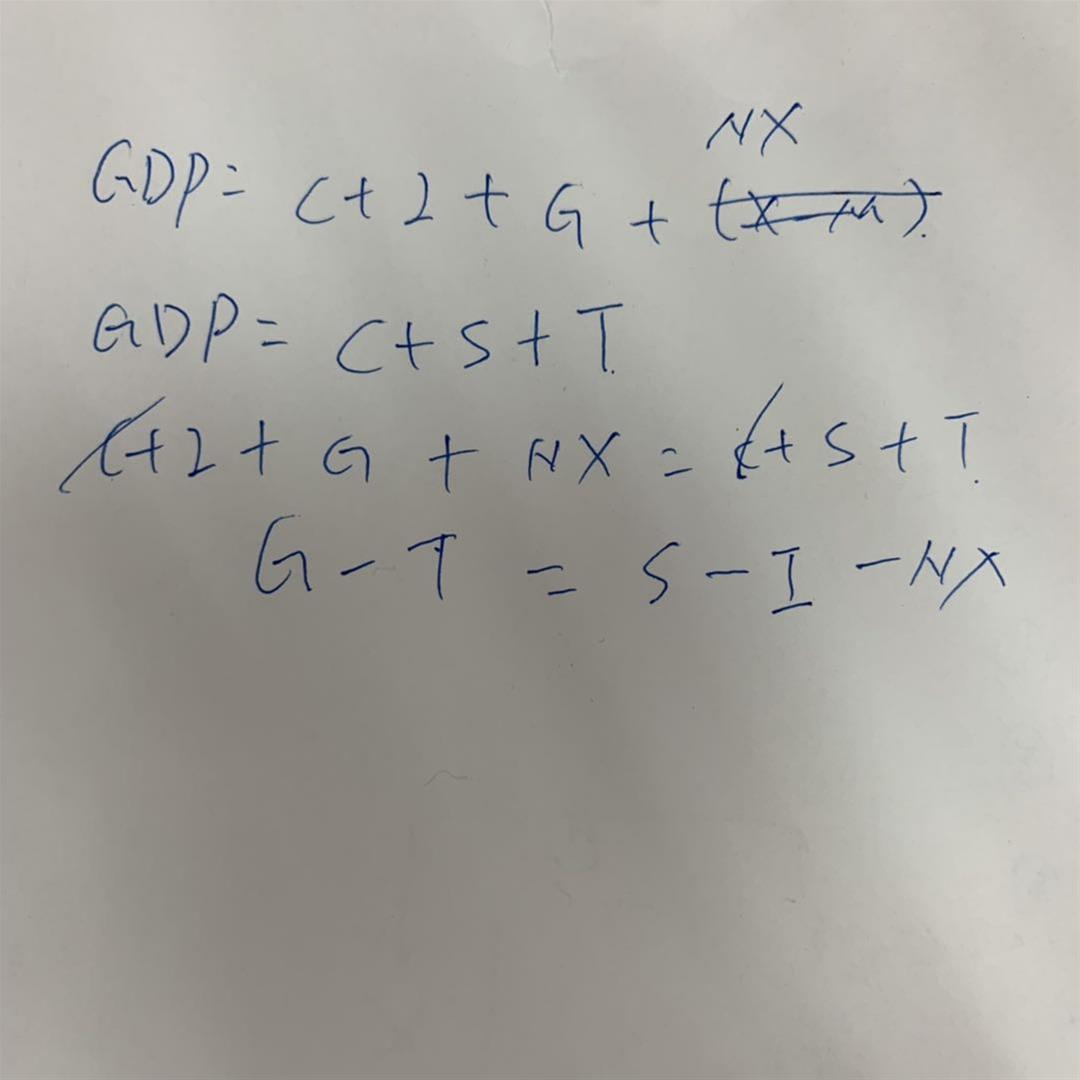 NX
GDP= C+I+G+(X-M).
GDP= C+S+T.
C+I+G+NX=C+S+T.
G-T=S-I-NX